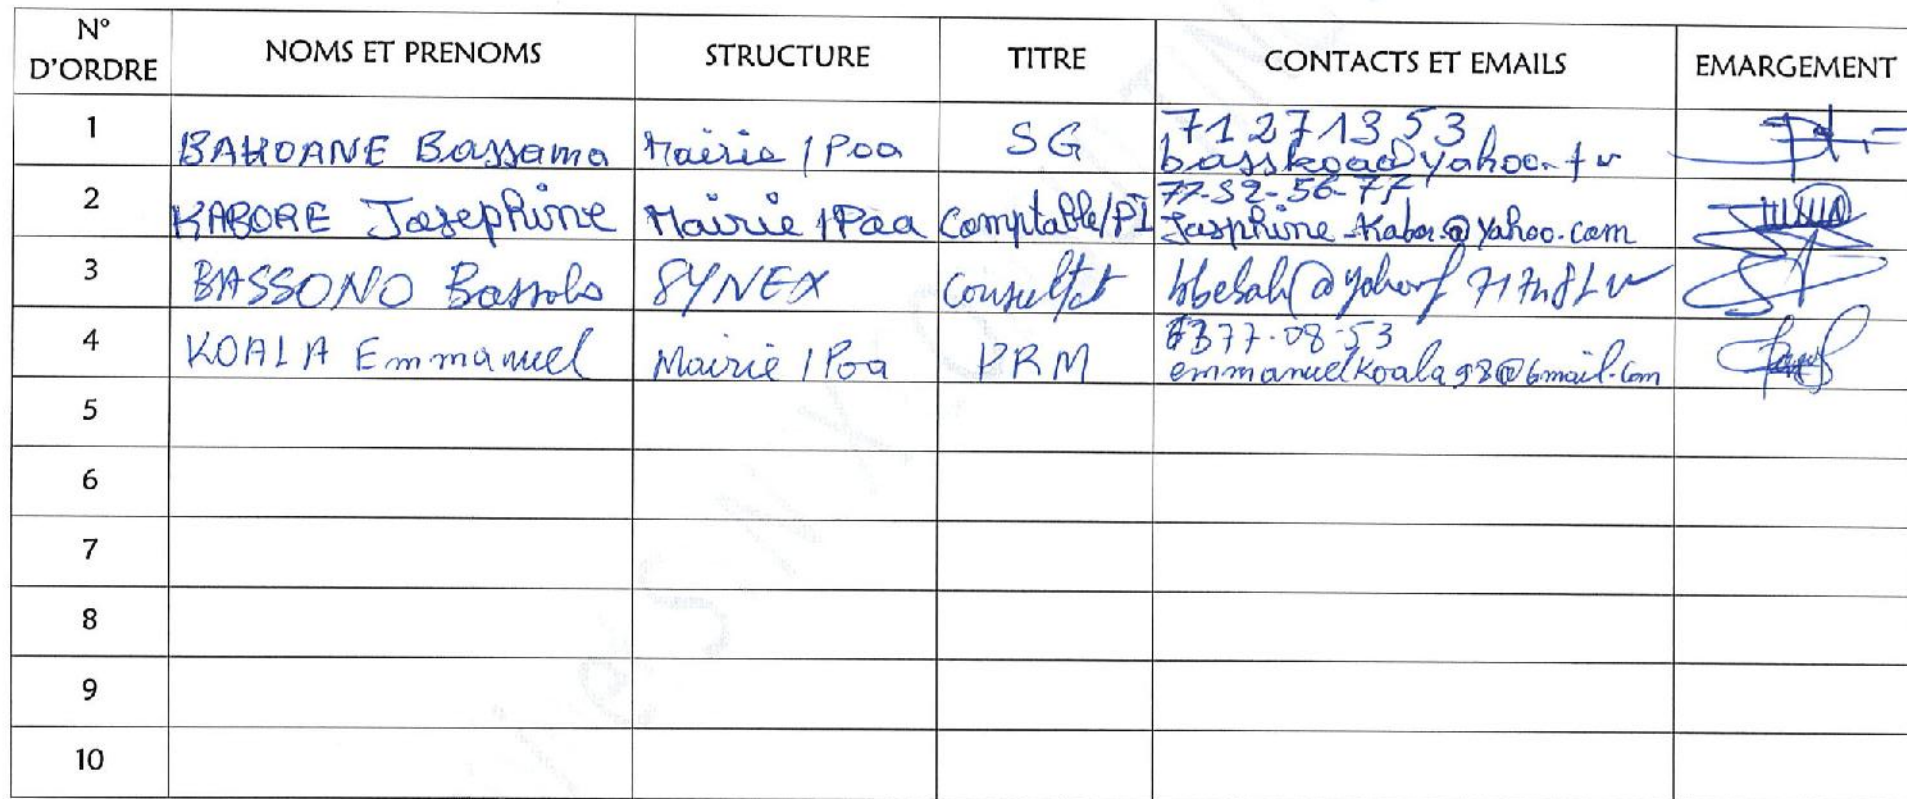 N° D'ORDRE NOMS ET PRENOMS STRUCTURE TITRE CONTACTS ET EMAILS EMARGEMENT
1 BAKOANE Bassama Mairie / Poa SG 71 27 13 53
basskoad@yahoo.fr
2 KABORE Josephine Mairie / Poa Comptable/PI 77-32-56-77
Josphine_Kabor@yahoo.com
3 BASSONO SYNEX
4 KOALA Emmanuel Mairie / Poa PRM 77-08-53
emmanuelkoala98@Gmail.com
5
6
7
8
9
10